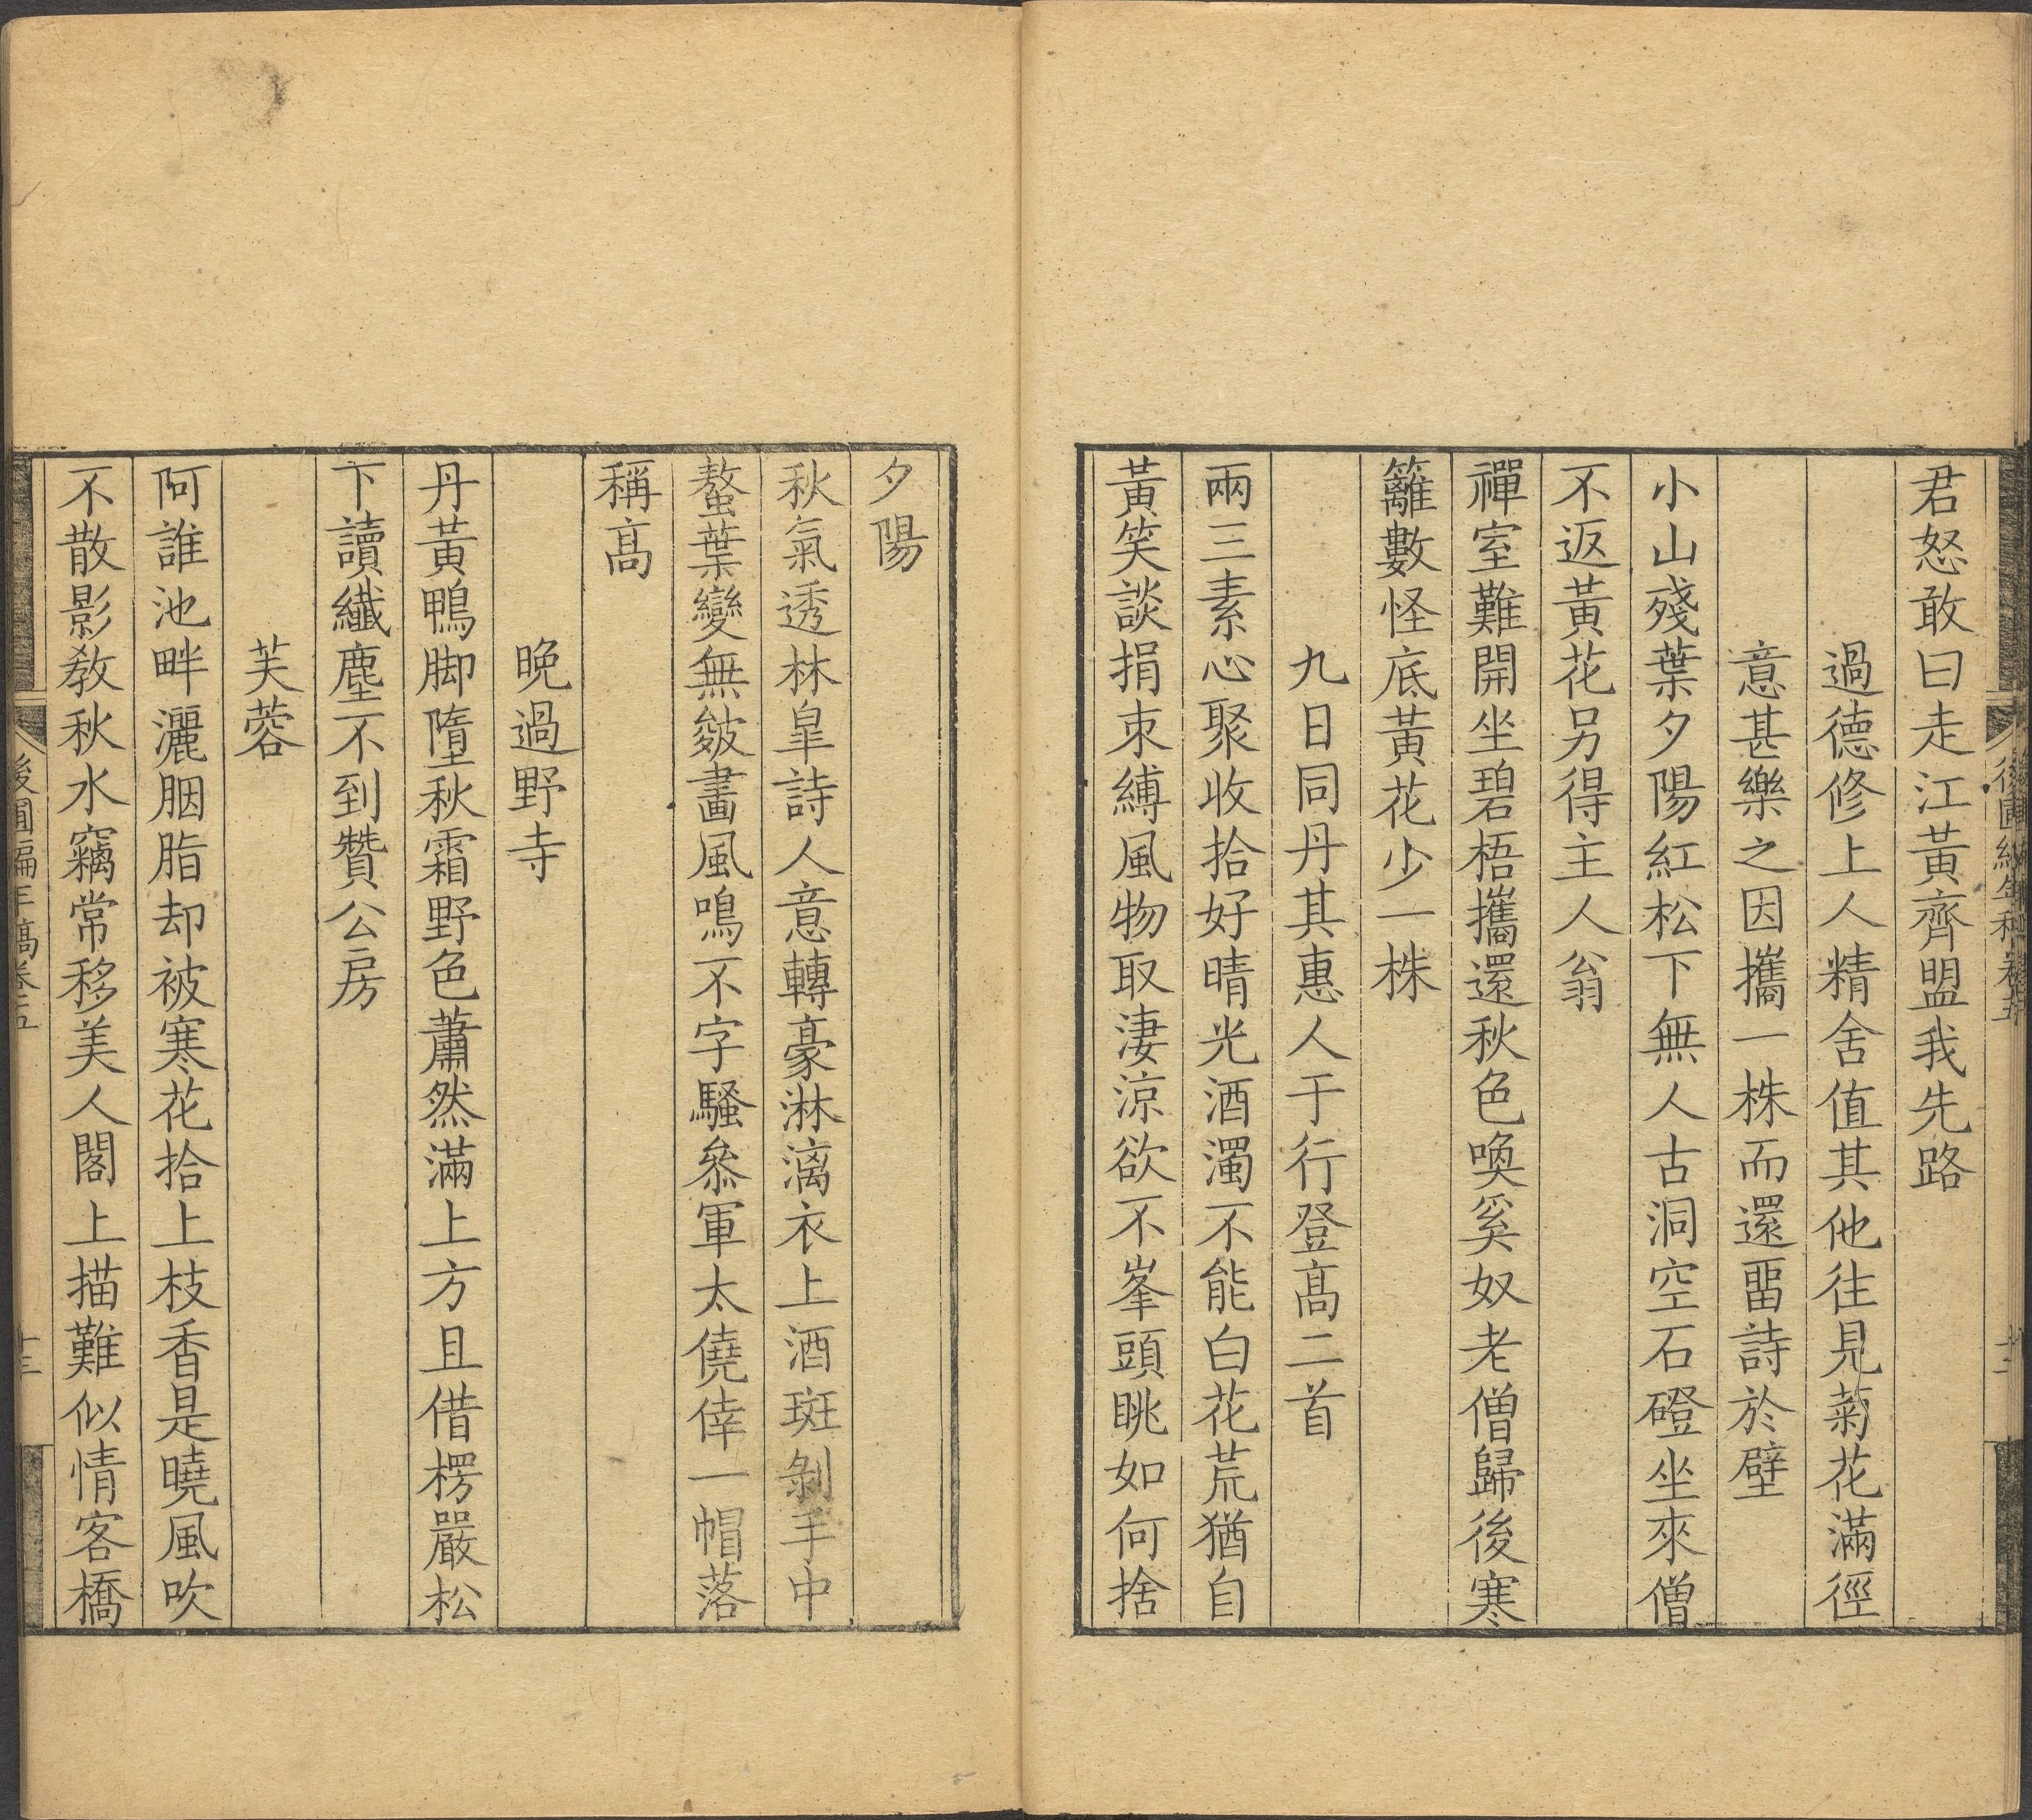 君怒敢曰走江黃齊盟我先路
過德修上人精舍值其他往見菊花滿徑
意甚樂之因攜一株而還畱詩於壁
小山殘葉夕陽紅松下無人古洞空石磴坐來僧
不返黃花另得主人翁
禪室難開坐碧梧攜還秋色喚奚奴老僧歸後寒
籬數怪底黃花少一株
九日同丹其惠人于行登高二首
兩三素心聚收拾好晴光酒濁不能白花荒猶自
黃笑談捐束縛風物取淒涼欲不峯頭眺如何捨
夕陽
秋氣透林皐詩人意轉豪淋漓衣上酒斑剝手中
螯葉變無皴畫風鳴不字騷叅軍太僥倖一帽落
稱高
晚過野寺
丹黃鴨脚墮秋霜野色蕭然滿上方且借楞嚴松
下讀纖塵不到贊公房
芙蓉
阿誰池畔灑胭脂却被寒花拾上枝香是曉風吹
不散影教秋水竊常移美人閣上描難似情客橋
後圃編年稿卷五
十三